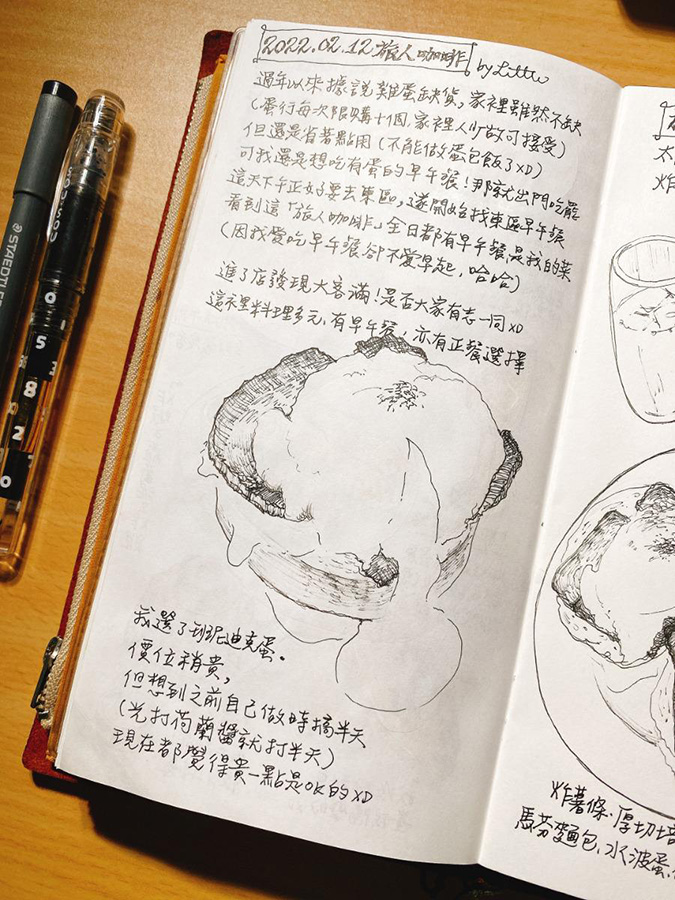 2022.02.12 旅人咖啡
by Little
過年以來據說雞蛋缺貨，家裡雖然不缺
(蛋行每次限購十個，家裡人少故可接受)
但還是省著點用（不能做蛋包飯了XD）
可我還是想吃有蛋的早午餐！那就出門吃罷
這天下午正好要去東區，遂開始找東區早午餐
看到這「旅人咖啡」全日都有早午餐，是我的菜
（因我愛吃早午餐卻不愛早起，哈哈）
進了店發現大客滿！是否大家有志一同XD
這裡料理多元，有早午餐，亦有正餐選擇
我選了班尼迪克蛋。
價位稍貴，
但想到之前自己做時搞半天
（光打荷蘭醬就打半天）
現在都覺得貴一點是OK的XD
太
炸
炸薯條、厚切培
馬芬麵包、水波蛋、
STAEDTLER
SOUSOU
0
5
8
2
0